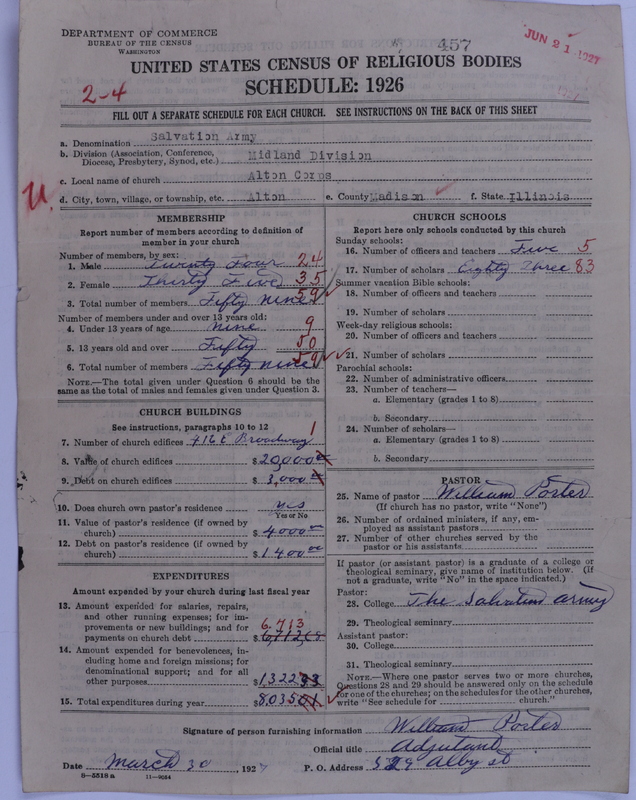 DEPARTMENT OF COMMERCE
BUREAU OF THE CENSUS
WASHINGTON
457
JUN 21 1927
UNITED STATES CENSUS OF RELIGIOUS BODIES
SCHEDULE: 1926
2-4
FILL OUT A SEPARATE SCHEDULE FOR EACH CHURCH. SEE INSTRUCTIONS ON THE BACK OF THIS SHEET
a. Denomination Salvation Army
b. Division (Association, Conference, Diocese, Presbytery, Synod, etc.) Midland Division
c. Local name of church Alton Corps
U.
d. City, town, village, or township, etc. Alton e. County Madison f. State Illinois
MEMBERSHIP
Report number of members according to definition of
member in your church
Number of members, by sex:
1. Male Twenty Four 24
2. Female Thirty Five 35
3. Total number of members Fifty nine 59
Number of members under and over 13 years old:
4. Under 13 years of age nine 9
5. 13 years old and over Fifty 50
6. Total number of members Fifty nine 59
NOTE.—The total given under Question 6 should be the
same as the total of males and females given under Question 3.
CHURCH BUILDINGS
See instructions, paragraphs 10 to 12
7. Number of church edifices 916 E Broadway 1
8. Value of church edifices $20,000
9. Debt on church edifices $3,000
10. Does church own pastor's residence yes
Yes or No
11. Value of pastor's residence (if owned by
church) $4000 00
12. Debt on pastor's residence (if owned by
church) $1400 00
EXPENDITURES
Amount expended by your church during last fiscal year
13. Amount expended for salaries, repairs,
and other running expenses; for im-
provements or new buildings; and for
payments on church debt $6,712.68 6,713
14. Amount expended for benevolences, in-
cluding home and foreign missions; for
denominational support; and for all
other purposes $1322 33
15. Total expenditures during year $8,035 01
CHURCH SCHOOLS
Report here only schools conducted by this church
Sunday schools:
16. Number of officers and teachers Five 5
17. Number of scholars Eighty Three 83
Summer vacation Bible schools:
18. Number of officers and teachers
19. Number of scholars
Week-day religious schools:
20. Number of officers and teachers
21. Number of scholars
Parochial schools:
22. Number of administrative officers
23. Number of teachers—
a. Elementary (grades 1 to 8)
b. Secondary
24. Number of scholars—
a. Elementary (grades 1 to 8)
b. Secondary
PASTOR
25. Name of pastor William Porter
(If church has no pastor, write "None")
26. Number of ordained ministers, if any, em-
ployed as assistant pastors
27. Number of other churches served by the
pastor or his assistants
If pastor (or assistant pastor) is a graduate of a college or
theological seminary, give name of institution below. (If
not a graduate, write "No" in the space indicated.)
Pastor:
28. College The Salvation army
29. Theological seminary
Assistant pastor:
30. College
31. Theological seminary
NOTE.—Where one pastor serves two or more churches,
Questions 28 and 29 should be answered only on the schedule
for one of the churches; on the schedules for the other churches,
write "See schedule for church."
Signature of person furnishing information William Porter
Official title Adjutant
Date March 30, 192
P. O. Address Alby st
8-5518a 11-9054